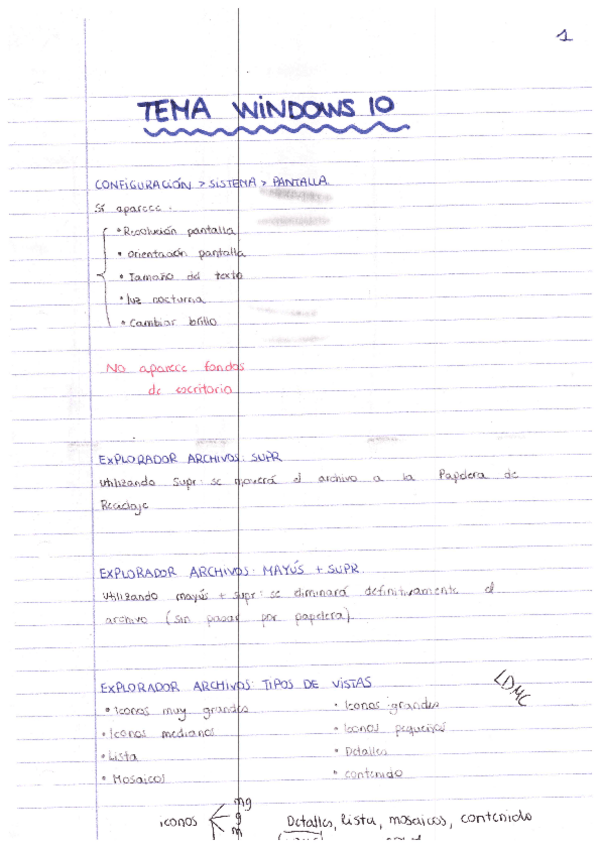 1
TEMA WINDOWS 10
CONFIGURACIÓN > SISTEMA > PANTALLA.
Sí aparece:
• Resolución pantalla
• orientación pantalla
• Tamaño del texto
• luz nocturna
• Cambiar brillo
No aparece fondos
de escritorio
EXPLORADOR ARCHIVOS: SUPR
Utilizando Supr: se moverá el archivo a la Papelera de
Reciclaje
EXPLORADOR ARCHIVOS: MAYÚS + SUPR.
Utilizando mayús + supr: se eliminará definitivamente el
archivo (sin pasar por papelera).
EXPLORADOR ARCHIVOS: TIPOS DE VISTAS
LDMC
• Iconos muy grandes • Iconos grandes
• Iconos medianos • Iconos pequeños
• Lista • Detalles
• Mosaicos • contenido
mg
iconos g Detalles, lista, mosaicos, contenido
m